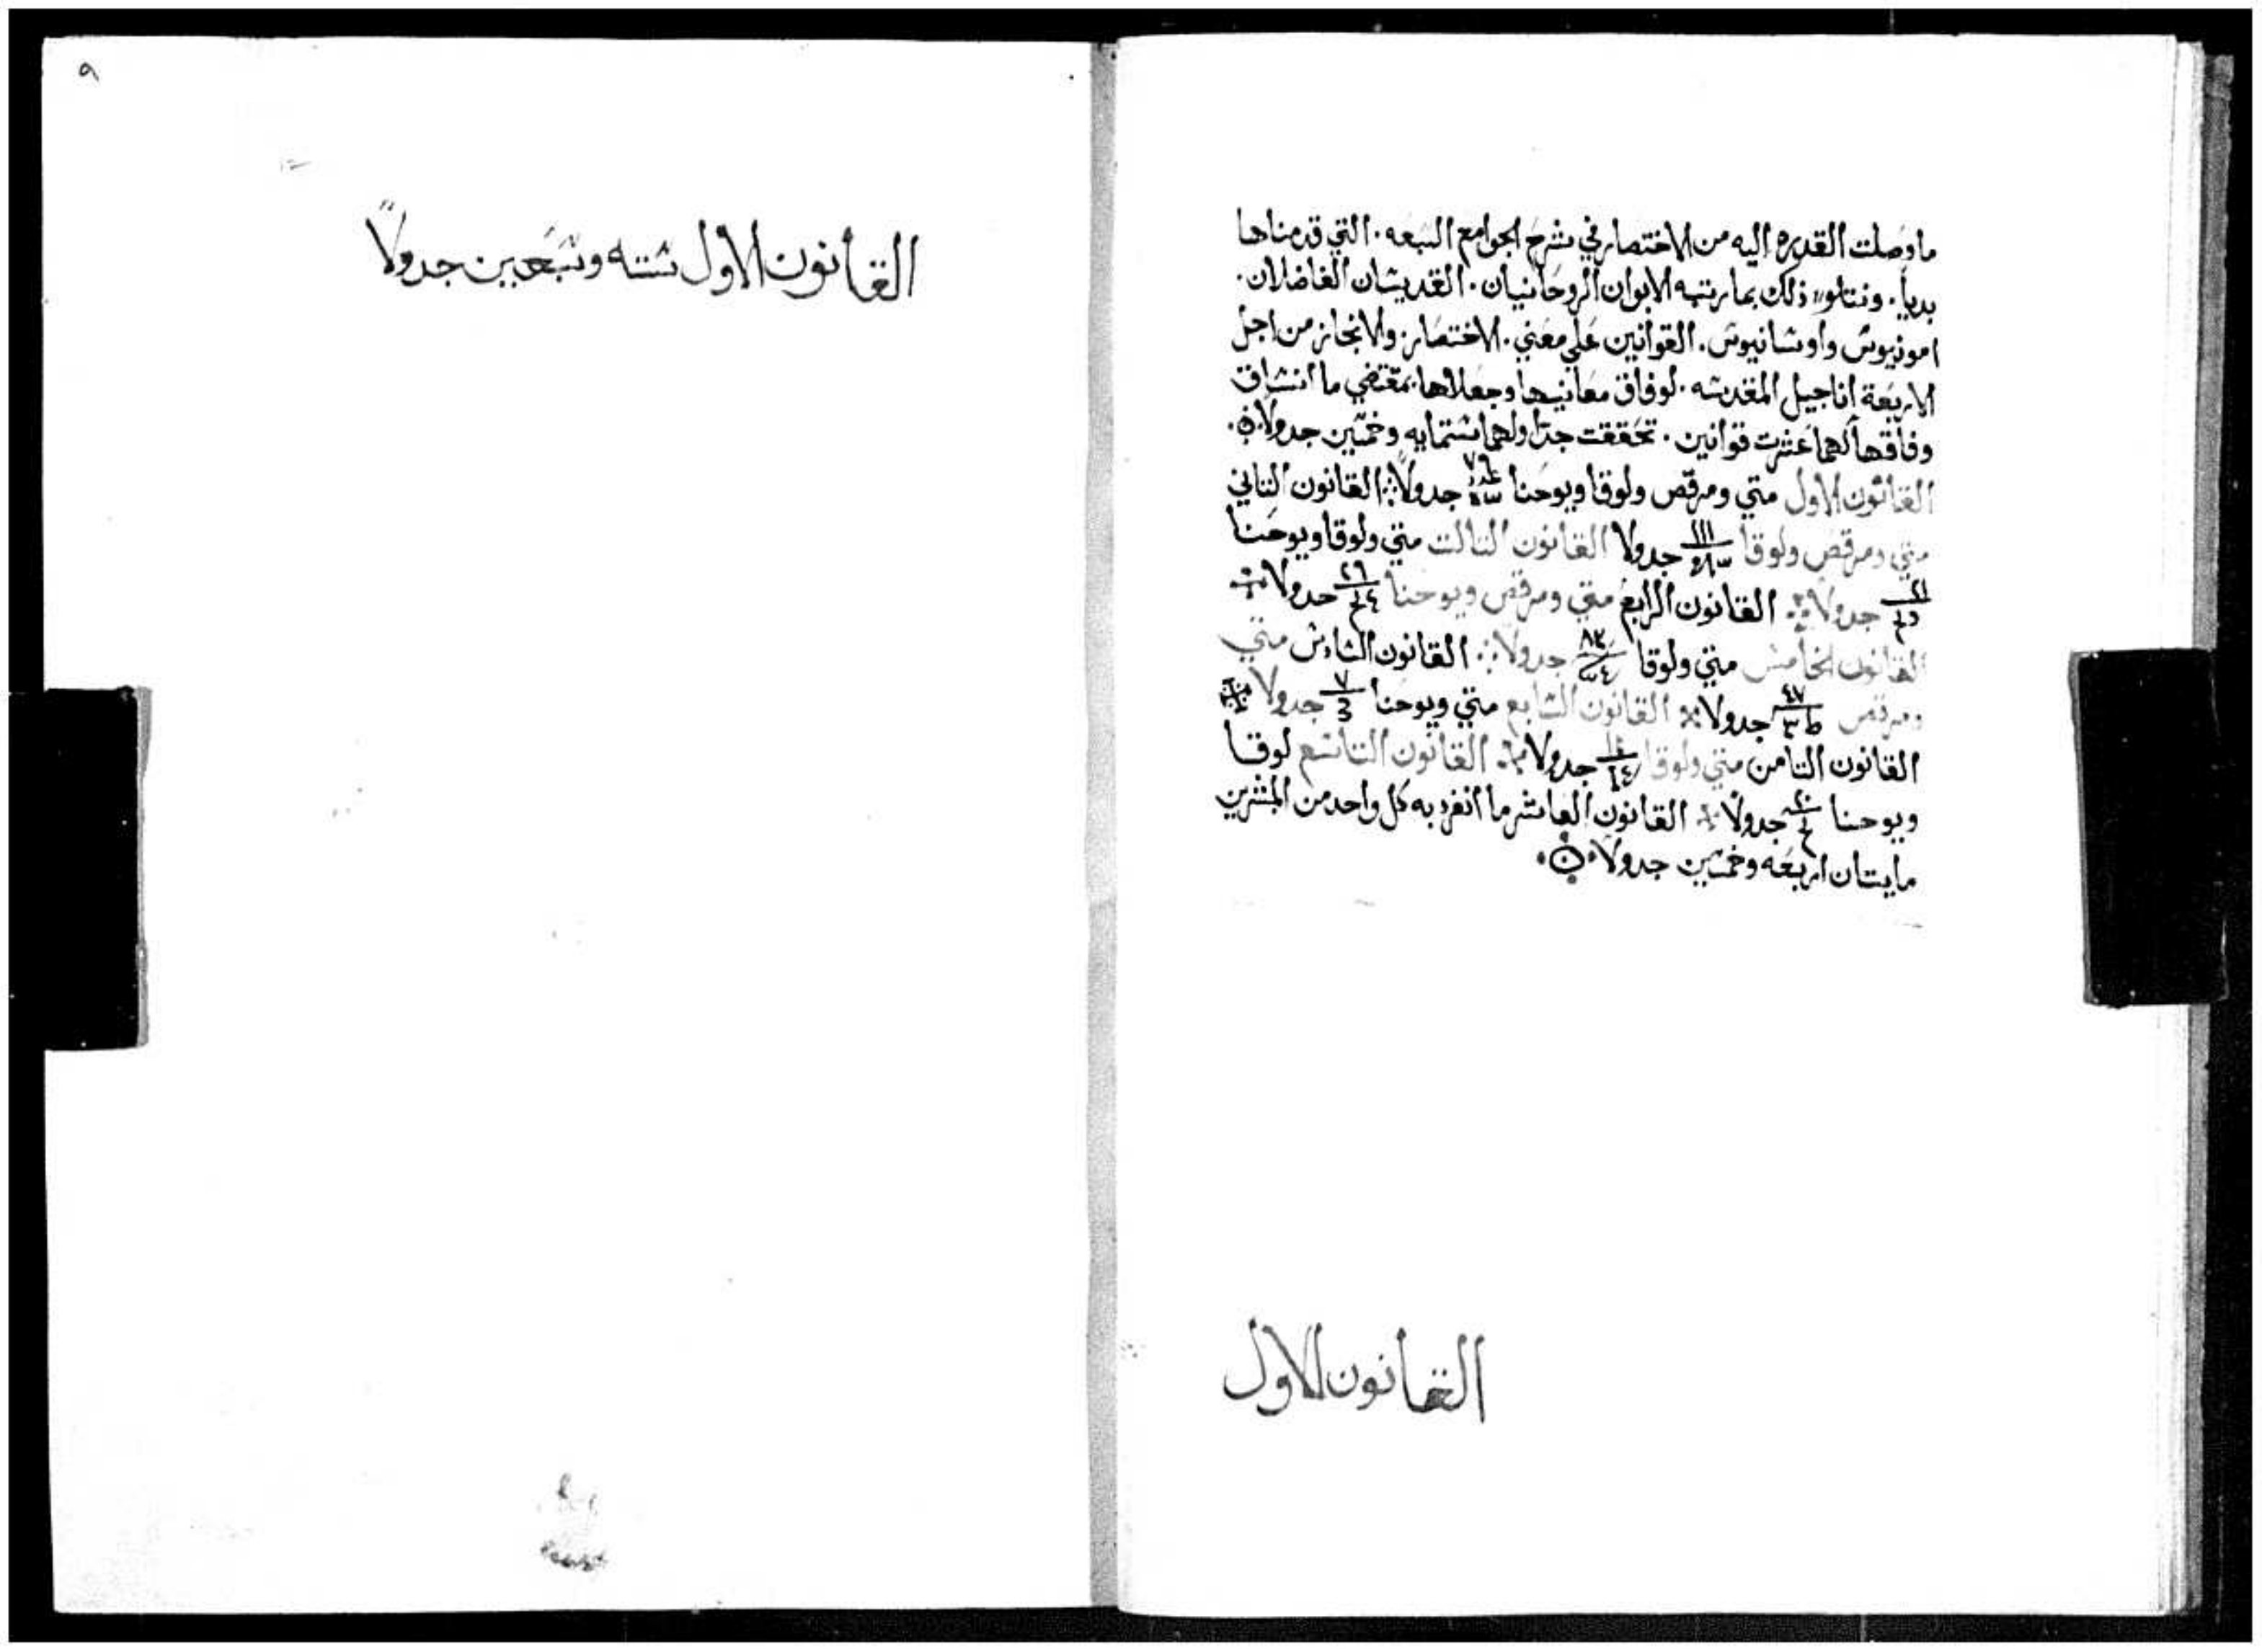 ما وصلت القدره اليه من الاختصار في شرح الجوامع السبعه . التي قدمناها
بديا . ونتلو ذلك بما رتبه الابوان الروحانيان . القديشان الفاضلان .
امونيوش واوشانيوش . القوانين علي معني . الاختصار والانجاز من اجل
الاربعة اناجيل المقدشه . لوفاق معانيها وجعلاها بمقتضي ما انشاق
وفاقها لهما عشرت قوانين . تحققت جداولهما شتمايه وخمشين جدولاً
القانون الاول متي ومرقص ولوقا ويوحنا ٧٦ جدولاً القانون الثاني
متي ومرقص ولوقا ١١١ جدولا القانون الثالث متي ولوقا ويوحنا
٢٢ جدولا القانون الرابع متي ومرقص ويوحنا ٢٦ جدولا
القانون الخامش متي ولوقا ٨٣ جدولا القانون الشادش متي
ومرقص ٤٧ جدولا القانون الشابع متي ويوحنا ٧ جدولا
القانون الثامن متي ولوقا ١٤ جدولا القانون التاشع لوقا
ويوحنا ٢٠ جدولا القانون العاشر ما انفرد به كل واحد من المبشرين
مايتان اربعه وخمشين جدولا
القانون الاول
٩
القانون الاول شته وشبعين جدولاً